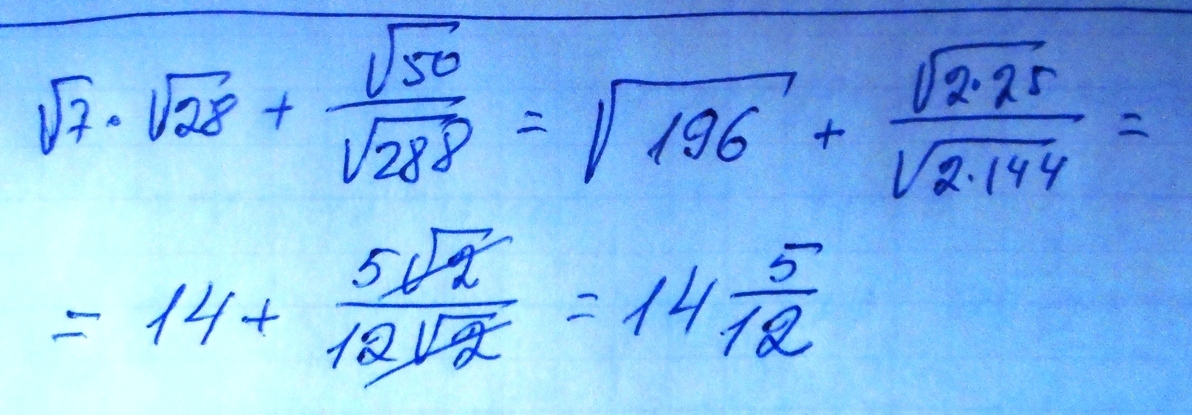 √7 · √28 + √50/√288 = √196 + √2·25/√2·144 =
= 14 + 5√2/12√2 = 14 5/12